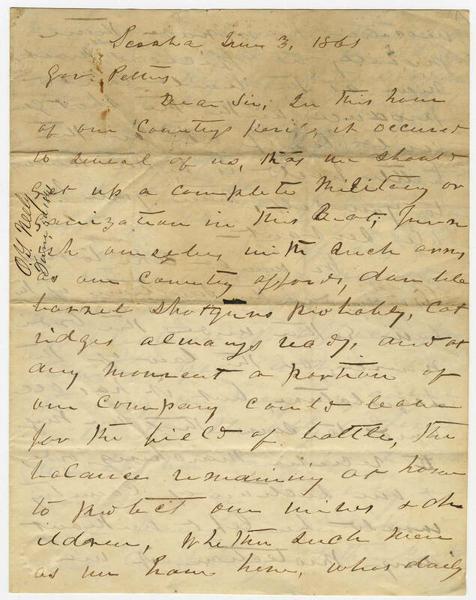 June 3, 1861
Gov. Pettus
Dear Sir, In this hour
of our Countrys peril, it occured
to several of us, that we should
get up a complete Military or
ganization in this Beat, furni
sh ourselves with such arms
as our Country affords, double
barrel shotguns probably, Cat
ridges always ready, and at
any moment a portion of
our Company could leave
for the field of battle, the
balance remaining at home
to protect our wives & ch
ildren, Whether such men
as we have here, who daily
O. Y. Neely